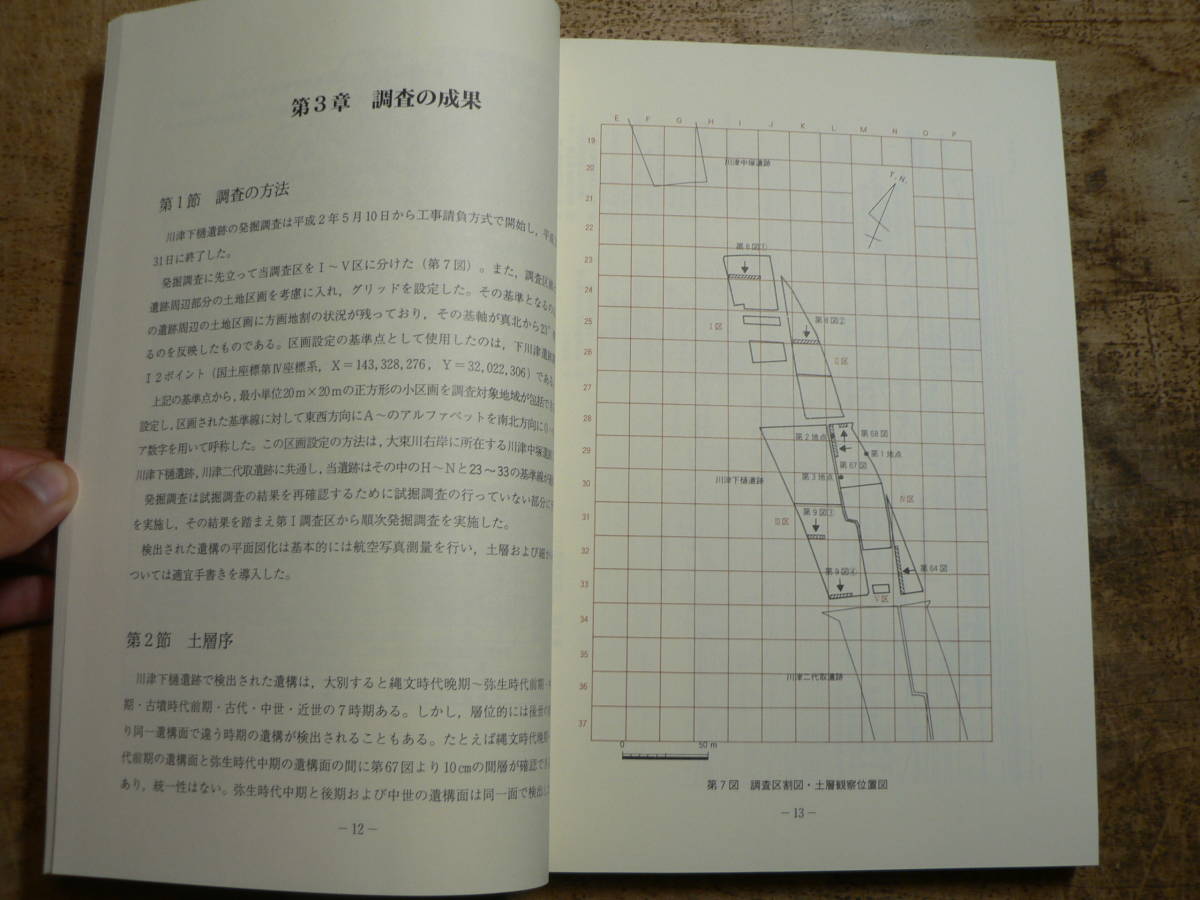 第3章 調査の成果
第1節 調査の方法
川津下樋遺跡の発掘調査は平成2年5月10日から工事請負方式で開始し，平成
31日に終了した。
発掘調査に先立って当調査区をⅠ～Ⅴ区に分けた（第7図）。また，調査区域
遺跡周辺部分の土地区画を考慮に入れ，グリッドを設定した。その基準となるの
の遺跡周辺の土地区画に方画地割の状況が残っており，その基軸が真北から23°
るのを反映したものである。区画設定の基準点として使用したのは，下川津遺跡
I2ポイント（国土座標第Ⅳ座標系，X＝143,328,276，Y＝32,022,306）である
上記の基準点から，最小単位20m×20mの正方形の小区画を調査対象地域が包括でき
設定し，区画された基準線に対して東西方向にA～のアルファベットを南北方向に
ア数字を用いて呼称した。この区画設定の方法は，大東川右岸に所在する川津中塚遺跡
川津下樋遺跡，川津二代取遺跡に共通し，当遺跡はその中のH～Nと23～33の基準線が
発掘調査は試掘調査の結果を再確認するために試掘調査の行っていない部分に
を実施し，その結果を踏まえ第Ⅰ調査区から順次発掘調査を実施した。
検出された遺構の平面図化は基本的には航空写真測量を行い，土層および細か
ついては適宜手書きを導入した。
第2節 土層序
川津下樋遺跡で検出された遺構は，大別すると縄文時代晩期～弥生時代前期・
期・古墳時代前期・古代・中世・近世の7時期ある。しかし，層位的には後世の
り同一遺構面で違う時期の遺構が検出されることもある。たとえば縄文時代晩期
代前期の遺構面と弥生時代中期の遺構面の間に第67図より10cmの間層が確認でき
あり，統一性はない。弥生時代中期と後期および中世の遺構面は同一面で検出
－12－
E F G H I J K L M N O P
19
20
21
22
23
24
25
26
27
28
29
30
31
32
33
34
35
36
37
川津中塚遺跡
T.N.
第8図①
Ⅰ区
第8図②
Ⅱ区
第2地点
第68図
第1地点
第67図
川津下樋遺跡
第3地点
Ⅳ区
第9図③
Ⅲ区
第9図④
第64図
Ⅴ区
川津二代取遺跡
0 50m
第7図 調査区割図・土層観察位置図
－13－